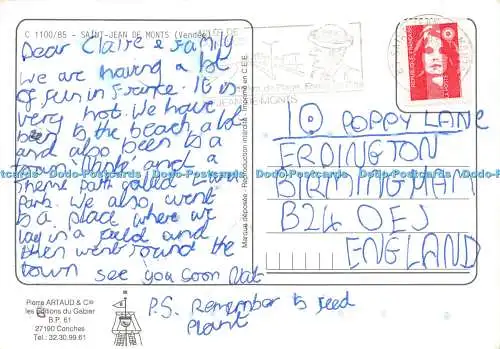 C 1100/85 - SAINT-JEAN DE MONTS (Vendée)
Dear Claire & Family
We are having a lot
of fun in France. It is
very hot. We have
been to the beach a lot
and also been to a
town and a
theme park called
Park. We also went
to a place where we
lay in a field and
then went round the
town see you soon Nat
P.S. Remember to feed
plant
Marque déposée - Reproduction interdite - Imprimé en C.E.E.
ST JEAN DE MONTS
10 POPPY LANE
ERDINGTON
BIRMINGHAM
B24 OEJ
ENGLAND
Pierre ARTAUD & Cie
les Editions du Gabier
B.P. 61
27190 Conches
Tel : 32.30.99.61
Data-Postcards